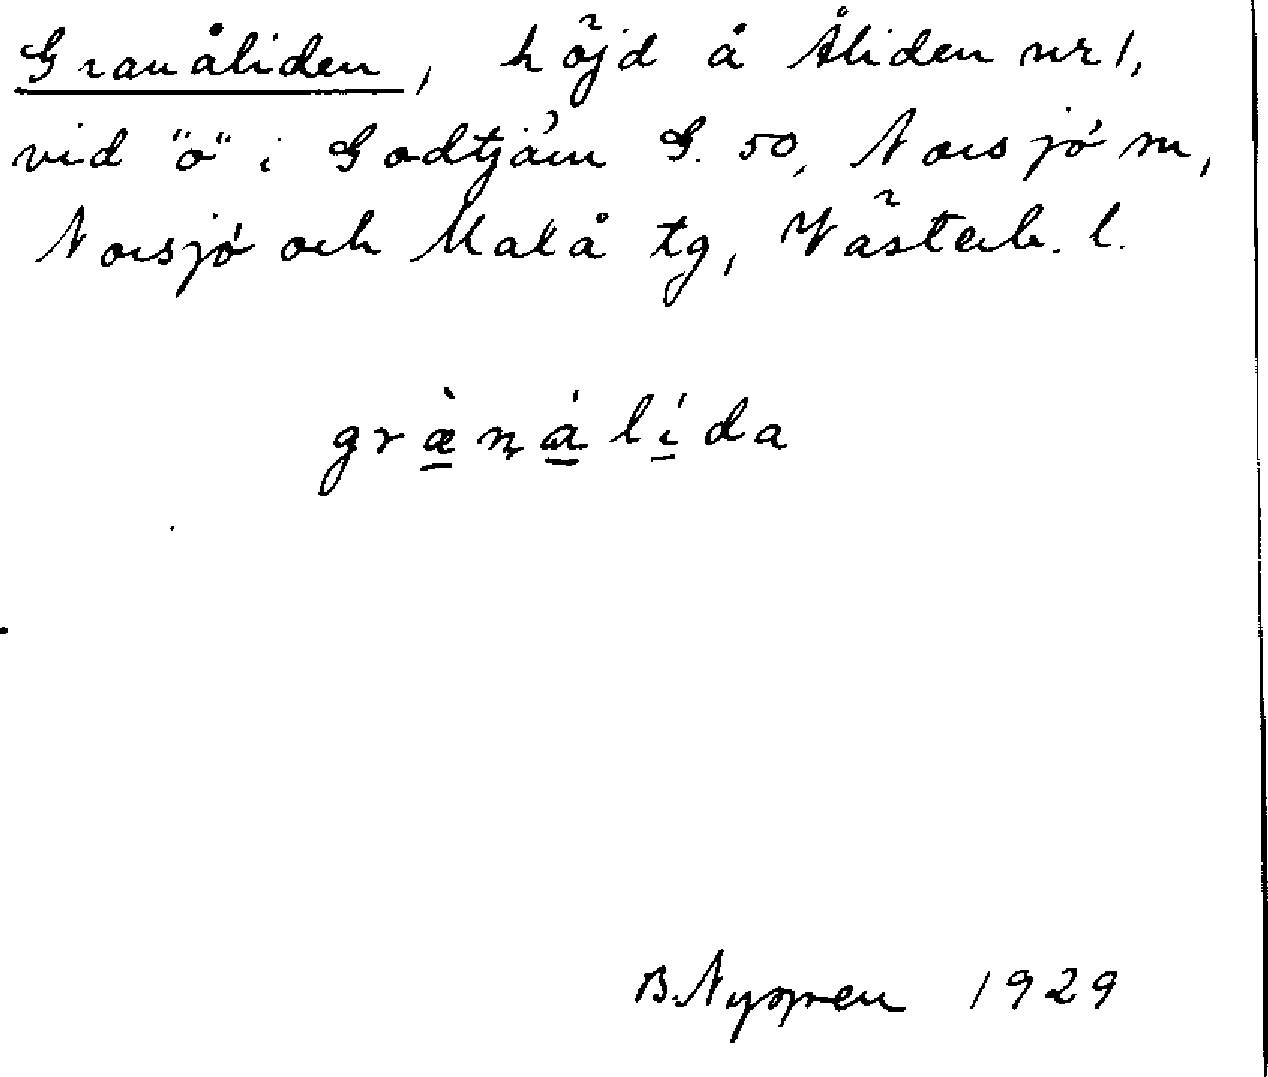 Granåliden, höjd å Åliden nr 1,
vid "o" i Godtjärn G. 50, Norsjö sn,
Norsjö och Malå tg, Västerb. l.
græ̀náĺída
B. Nyman 1929